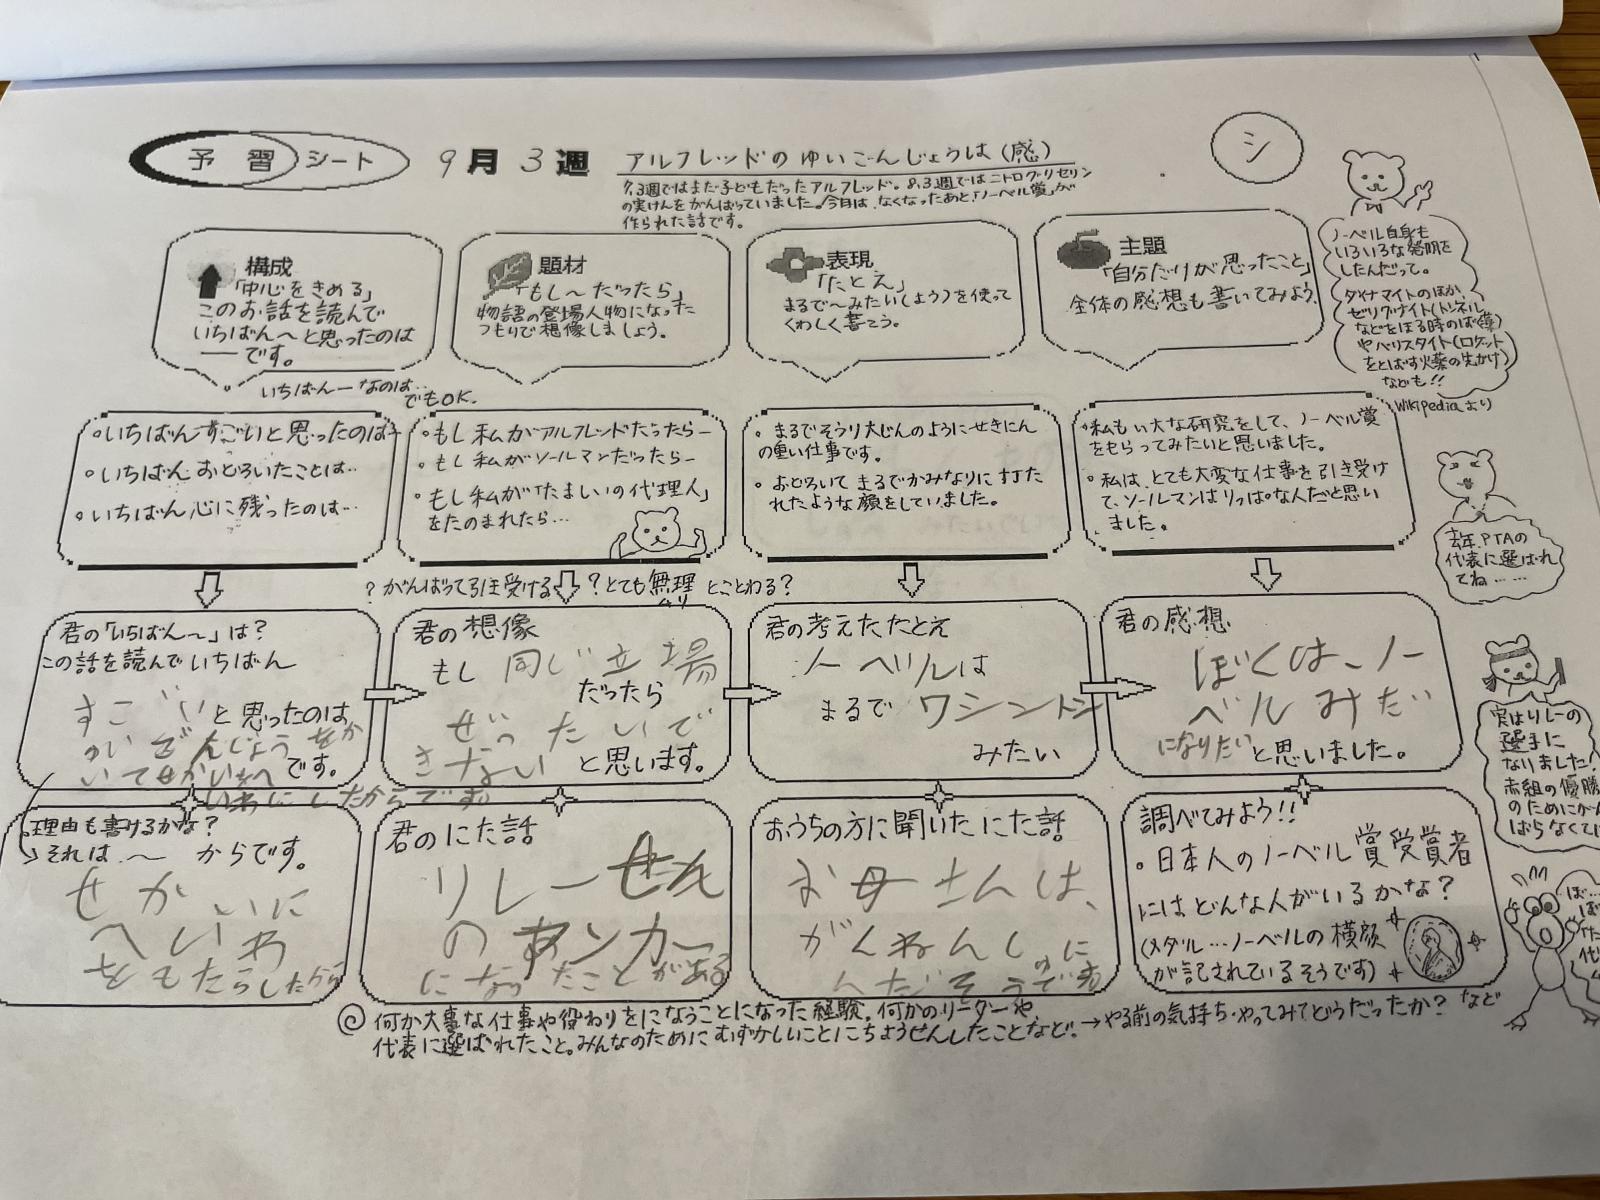 予習シート 9月3週 アルフレッドのゆいごんじょうは(感)
シ
7.3週ではまだ子どもだったアルフレッド。8.3週ではニトログリセリン
の実けんをがんばっていました。今月は、なくなったあと、「ノーベル賞」が
作られた話です。
構成
「中心をきめる」
このお話を読んで
いちばん〜と思ったのは
──です。
いちばん─なのは…
でもOK.
題材
「もし〜だったら」
物語の登場人物になった
つもりで想像しましょう。
表現
「たとえ」
まるで〜みたい(よう)を使って
くわしく書こう。
主題
「自分だけが思ったこと」
全体の感想も書いてみよう。
ノーベル自身も
いろいろな発明を
したんだって。
ダイナマイトのほか、
ゼリグナイト(トンネル
などをほる時のばく薬)
やバリスタイト(ロケット
をとばす火薬の先がけ)
なども!!
Wikipediaより
・いちばんすごいと思ったのは─
・いちばんおどろいたことは…
・いちばん心に残ったのは…
・もし私がアルフレッドだったら─
・もし私がソールマンだったら─
・もし私が「たましいの代理人」
をたのまれたら…
・まるでそうり大じんのようにせきにん
の重い仕事です。
・おどろいてまるでかみなりに打た
れたような顔をしていました。
・私もい大な研究をして、ノーベル賞
をもらってみたいと思いました。
・私は、とても大変な仕事を引き受け
て、ソールマンはりっぱな人だと思い
ました。
去年、PTAの
代表に選ばれ
てね……
?がんばって引き受ける ?とても無理とことわる?
むり
君の「いちばん〜」は?
この話を読んでいちばん
すごいと思ったのは
ゆいごんじょうをか
いてせかいをへ です。
いわにしたからです。
君の想像
もし同じ立場
だったら
ぜったいで
きないと思います。
君の考えたたとえ
ノーベルは
まるでワシントン
みたい
君の感想
ぼくは、ノー
ベルみたい
になりたいと思いました。
実はリレーの
選手に
なりました!
赤組の優勝
のためにがん
ばらなくては
理由も書けるかな?
→それは、〜からです。
せかいに
へいわ
をもたらしたから
君のにた話
リレーせん
のアンカー
になったことがある
おうちの方に聞いたにた話
お母さんは、
調べてみよう!!
・日本人のノーベル賞受賞者
にはどんな人がいるかな?
(メダル…ノーベルの横顔
が記されているそうです)
◎何か大事な仕事や役わりをになうことになった経験。何かのリーダーや、
代表に選ばれたこと。みんなのためにむずかしいことにちょうせんしたことなど。→やる前の気持ち・やってみてどうだったか?など